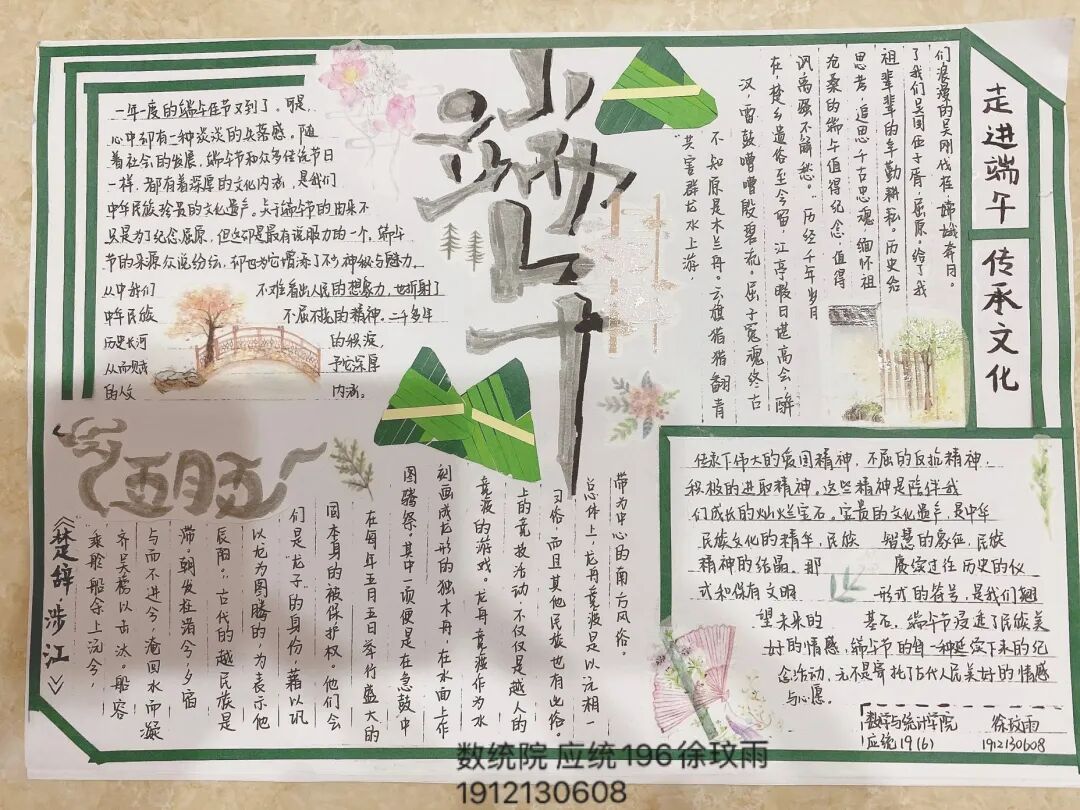 端午
走进端午
传承文化
一年一度的端午佳节又到了。可是,
心中却有一种淡淡的失落感。随
着社会的发展,端午节和众多传统节日
一样,都有着深厚的文化内涵,是我们
中华民族珍贵的文化遗产。关于端午节的由来不
只是为了纪念屈原,但这却是最有说服力的一个。端午
节的来源众说纷纭,却也为它增添了不少神秘与魅力。
从中我们 不难看出人民的想象力,也折射了
中华民族 不屈不挠的精神。二千多年
历史长河 的积淀,
从而赋 予它深厚
的人文 内涵。
们浪漫的吴刚伐桂,嫦娥奔月。
了我们吴国伍子胥,屈原。给了我
祖辈辈的辛勤耕耘。历史给
思考,追思千古忠魂,缅怀祖
沧桑的端午值得纪念,值得
讽离骚不解愁。”历经千年岁月
在,楚乡遗俗至今留。江亭暇日堪高会,醉
汉,雷鼓嘈嘈殷碧流。屈子冤魂终古
不知原是木兰舟。云旗猎猎翻青
“共骇群龙水上游,
五月五
《楚辞·涉江》
乘舲船余上沅兮,
齐吴榜以击汰。船容
与而不进兮,淹回水而凝
滞。朝发枉渚兮,夕宿
辰阳。”古代的越民族是
以龙为图腾的,为表示他
们是“龙子”的身份,藉以巩
固本身的被保护权。他们会
在每年五月五日举行盛大的
图腾祭,其中一项便是在急鼓中
刻画成龙形的独木舟,在水面上作
竞渡的游戏。龙舟竞渡作为水
上的竞技活动,不仅仅是越人的
习俗,而且其他民族也有此俗。
总体上,龙舟竞渡是以沅湘一
带为中心的南方风俗。
传承下伟大的爱国精神,不屈的反抗精神,
积极的进取精神。这些精神是陪伴我
们成长的灿烂宝石。宝贵的文化遗产,是中华
民族文化的精华,民族 智慧的象征,民族
精神的结晶。那 赓续过往历史的仪
式和保有文明 形式的符号,是我们翘
望未来的 基石。端午节浸透了民族美
好的情感,端午节的每一种延续下来的纪
念活动,无不是寄托了古代人民美好的情感
与心愿。
数学与统计学院 徐玟雨
应统19(6) 1912130608
数统院 应统196徐玟雨
1912130608